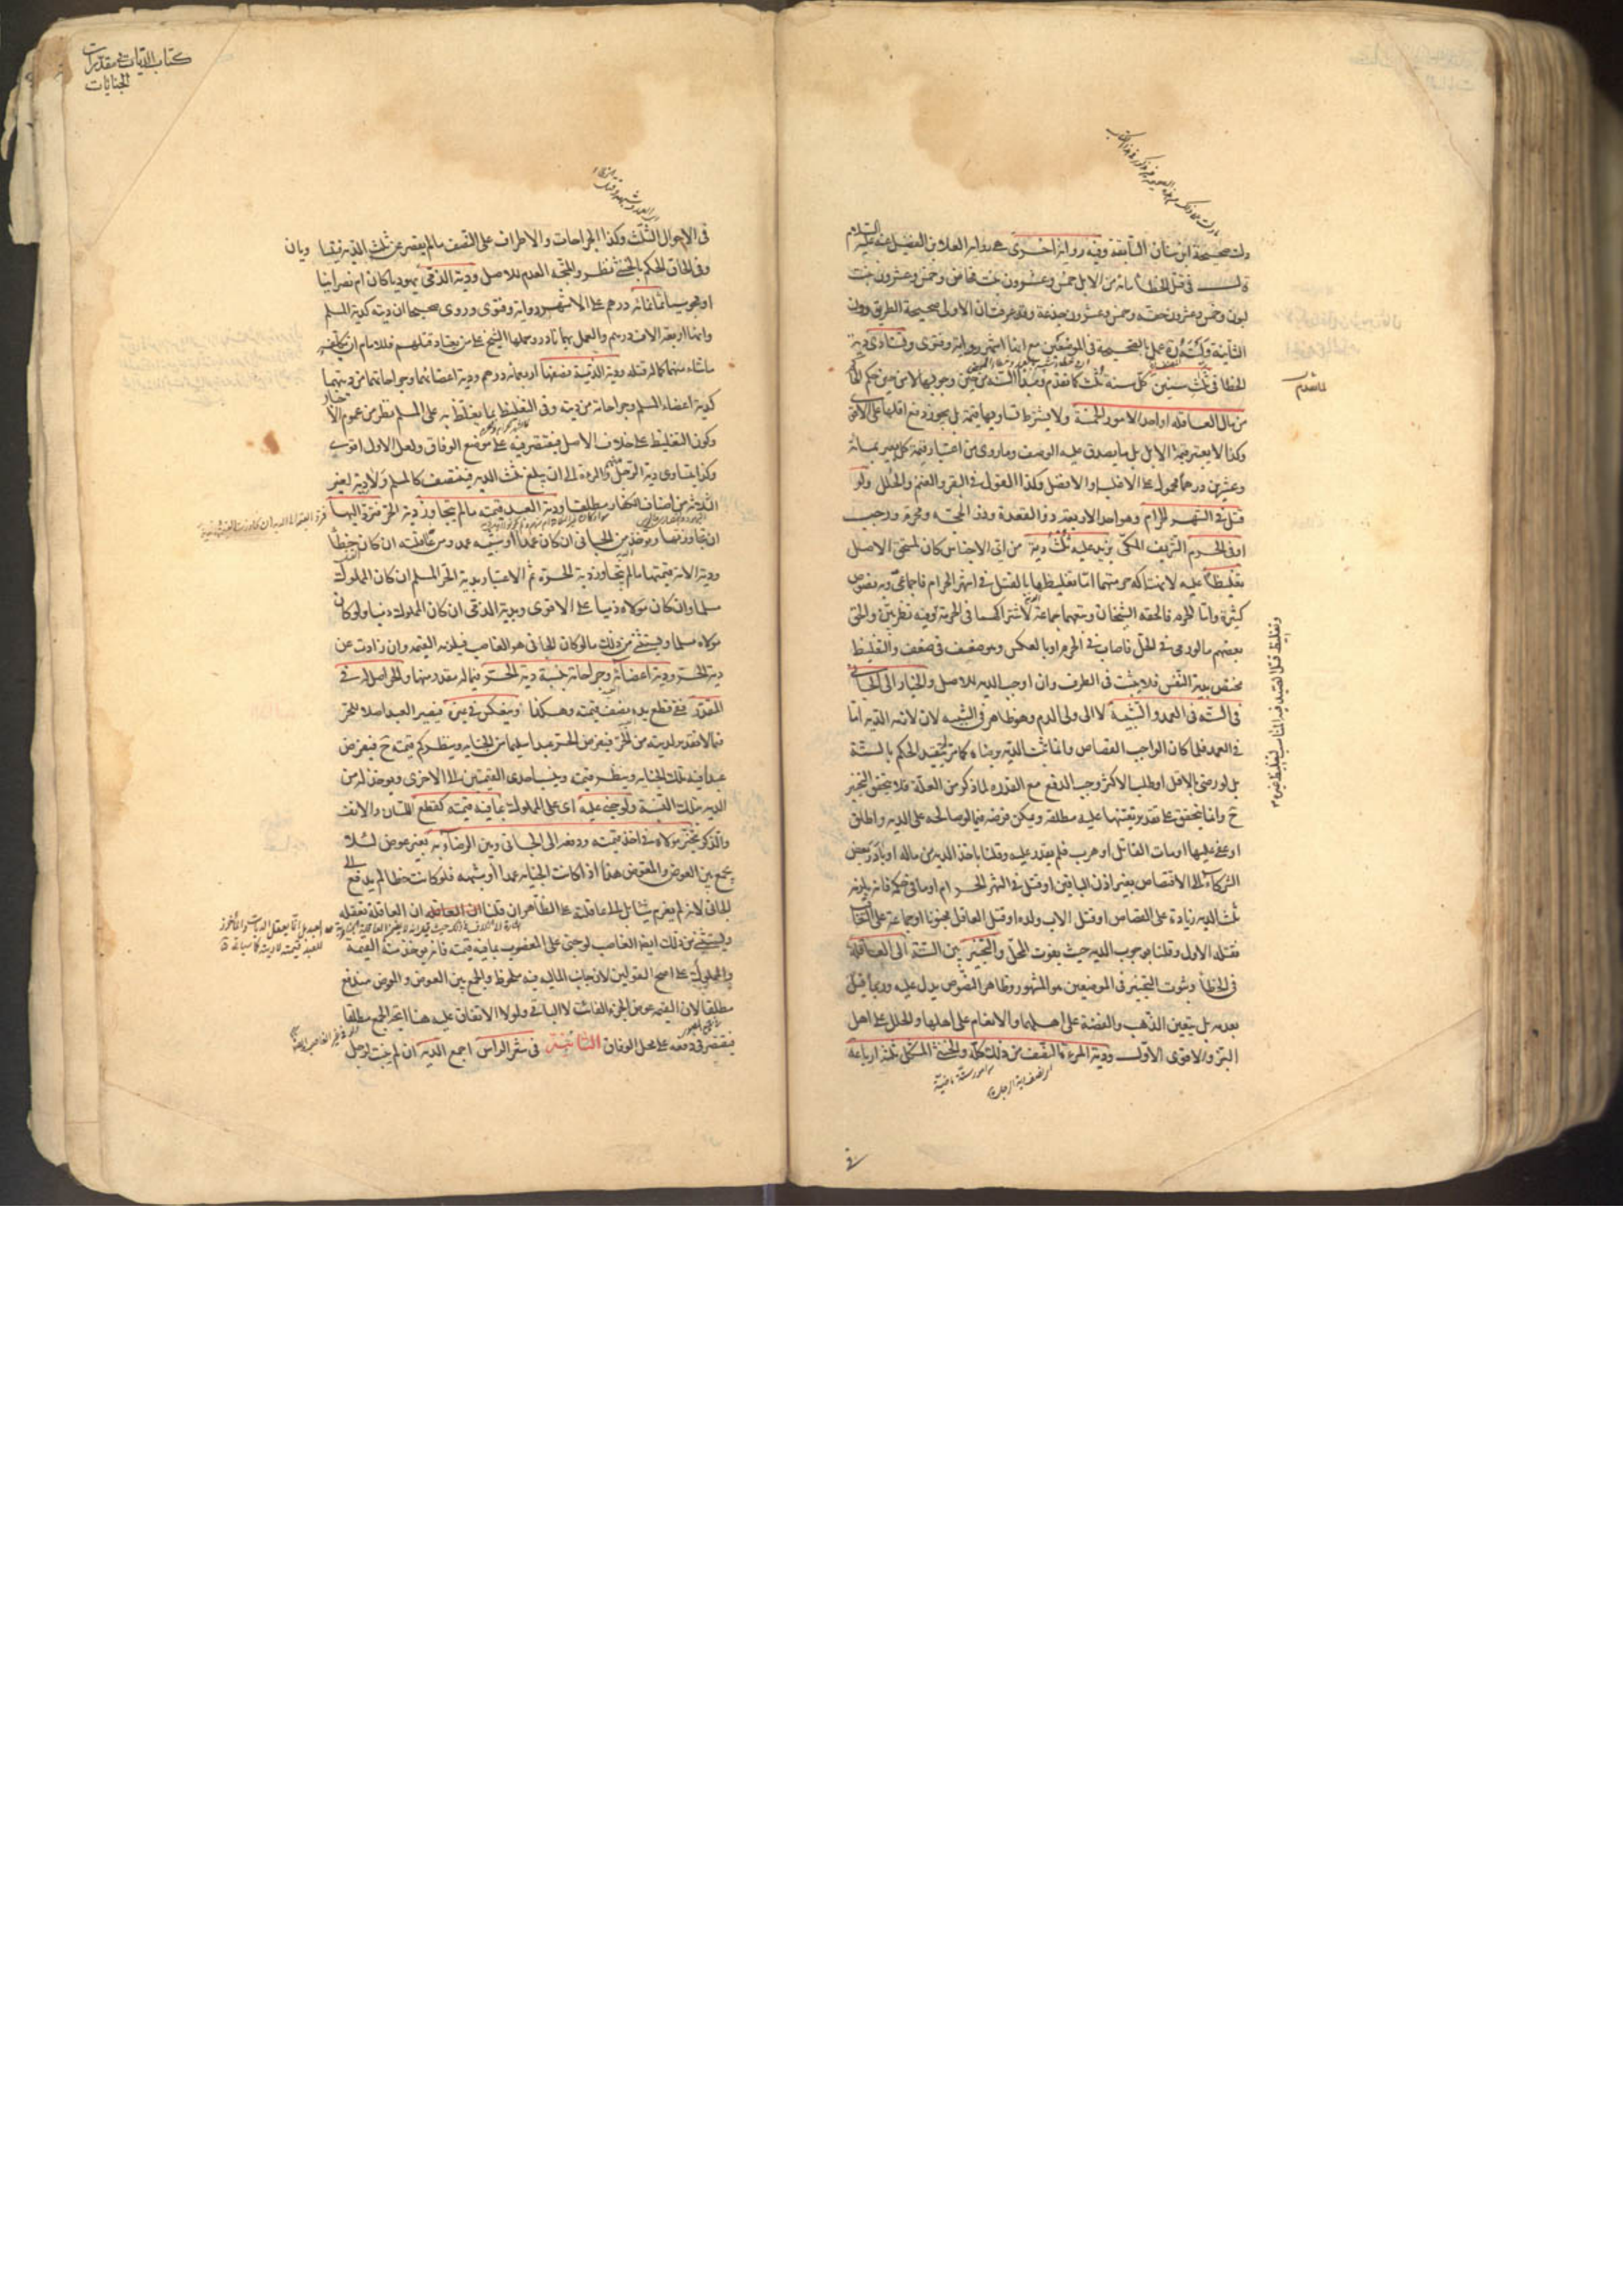 دلت صحيحة ابن سنان السابقة وفيه رواية اخرى هي رواية العلا بن الفضيل عنه عليه السلام
قال في قتل الخطأ مائة من الابل خمس وعشرون بنت مخاض وخمس وعشرون بنت
لبون وخمس وعشرون حقة وخمس وعشرون جذعة وقد عرفت ان الاولى صحيحة الطريق دون
الثانية وليته عمل بالصحيحة في الموضعين مع انها اشهر رواية وفتوى وتستأدى دية
الخطأ في ثلث سنين كل سنة ثلث كما تقدم ومبدأ السنة من حين وجوبها لا من حين حكم الحاكم
من مال العاقلة او احد الامور الخمسة ولا يشترط تساويها قيمة بل يجوز دفع اقلها على الاقوى
وكذا لا يعتبر قيمة الابل بل ما يصدق عليه الوصف وما روي من اعتبار قيمة كل بعير بمائة
وعشرين درهما محمول على الاغلب او الافضل وكذا القول في البقر والغنم والحلل ولو
قتل في الشهر الحرام وهو احد الاربعة ذو القعدة وذو الحجة ومحرم ورجب
او في الحرم الشريف المكي يزيد عليه ثلث دية من اي الاجناس كان لمستحق الاصل
تغليظا عليه لانتهاكه حرمتهما اما تغليظها بالقتل في اشهر الحرام فاجماعي وبه نصوص
كثيرة واما الحرم فالحقه الشيخان وتبعهما جماعة لاشتراكهما في الحرمة وفيه نظر بين والحق
بعضهم ما لو رمى في الحل فاصاب في الحرم او بالعكس وهو ضعيف في ضعيف والتغليظ
مختص بدية النفس فلا يثبت في الطرف وان اوجب الدية للاصل والخيار الى الجاني
في الستة في العمد والشبيه لا الى ولي الدم وهو ظاهر في الشبيه لان لازمه الدية اما
في العمد فلما كان الواجب القصاص وانما تثبت الدية برضاه كما مر لم يتقيد الحكم بالستة
بل لو رضي بالاقل او طلب الاكثر وجب الدفع مع القدرة لما ذكر من العلة فلا يتحقق التخيير
ح وانما يتحقق على تقدير تعينها عليه مطلقا ويمكن فرضه فيما لو صالحه على الدية واطلق
او عفى عليها او مات القاتل او هرب فلم يقدر عليه وقلنا باخذ الدية من ماله او بادر بعض
الشركاء الى الاقتصاص بغير اذن الباقين او قتل في الشهر الحرام او ما في حكمه فانه يلزمه
ثلث الدية زيادة على القصاص او قتل الاب ولده او قتل العاقل مجنونا او جماعة على التعاقب
فقتله الاول وقلنا بوجوب الدية حيث يفوت المحل والتخيير بين الستة الى العاقلة
في الخطأ وثبوت التخيير في الموضعين هو المشهور وظاهر النصوص يدل عليه وربما قيل
بعدمه بل يتعين الذهب والفضة على اهلهما والانعام على اهلها والحلل على اهل
البز والاقوى الاول ودية المرأة النصف من ذلك كله والخنثى المشكل ثلثة ارباعه
وتغليظ قتل العمد فيه المناسب لتغليظ غيره
في
كتاب الديات في مقدرات
الجنايات
في الاحوال الثلث وكذا الجراحات والاطراف على النصف ما لم يقصر عن ثلث الدية فيتساويان
وفي الحاق الحكم بالخنثى نظر والمتجه العدم للاصل ودية الذمي يهوديا كان ام نصرانيا
او مجوسيا ثمانمائة درهم على الاشهر رواية وفتوى وروي صحيحا ان ديته كدية المسلم
وانها اربعة الاف درهم والعمل بها نادر وحملها الشيخ على من يعتاد قتلهم فللامام ان يكلفه
ما شاء منهما كما له قتله ودية الذمية نصفها اربعمائة درهم ودية اعضائهما وجراحاتهما من ديتهما
كدية اعضاء المسلم وجراحاته من ديته وفي التغليظ بما يغلظ به على المسلم نظر من عموم الاخبار
وكون التغليظ على خلاف الاصل فيقتصر فيه على موضع الوفاق ولعل الاول اقوى
وكذا يتساوى دية الرجل منهم والمرأة الى ان يبلغ ثلث الدية فينتصف كالمسلم ولا دية لغير
الثلثة من اصناف الكفار مطلقا ودية العبد قيمته ما لم يتجاوز دية الحر فترد اليها
ان تجاوزتها ويؤخذ من الجاني ان كان عمدا او شبيه عمد ومن عاقلته ان كان خطأ
ودية الامة قيمتها ما لم يتجاوز دية الحرة ثم الاعتبار بدية الحر المسلم ان كان المملوك
مسلما وان كان مولاه ذميا على الاقوى وبدية الذمي ان كان المملوك ذميا ولو كان
مولاه مسلما ويستثنى من ذلك ما لو كان الجاني هو الغاصب فيلزمه القيمة وان زادت عن
دية الحر ودية اعضائه وجراحاته بنسبة دية الحر فيما له مقدر منها والحر اصل له في
المقدر ففي قطع يده نصف قيمته وهكذا وينعكس في غيره فيصير العبد اصلا للحر
فيما لا تقدير لديته من الحر فيفرض الحر عبدا سليما من الجناية وينظر كم قيمته ح فيعرض
عبدا فيه تلك الجناية وينظر قيمته وينسب احدى القيمتين الى الاخرى ويؤخذ له من
الدية بتلك النسبة ولو جنى عليه اي على المملوك بما فيه قيمته كقطع اللسان والانف
والذكر تخير مولاه في اخذ قيمته ودفعه الى الجاني وبين الرضا به بغير عوض لئلا
يجمع بين العوض والمعوض هذا اذا كانت الجناية عمدا او شبهه فلو كانت خطأ لم يدفع الى
الجاني لانه لم يغرم شيئا بل الى عاقلته على الظاهر ان قلنا ان العاقلة تعقله
ويستثنى من ذلك ايضا الغاصب لو جنى على المغصوب بما فيه قيمته فانه يؤخذ منه القيمة
والمملوك على اصح القولين لان جانب المالية فيه ملحوظ والجمع بين العوض والمعوض مندفع
مطلقا لان القيمة عوض الجزء الفائت لا الباقي ولولا الاتفاق عليه هنا اتجه الجمع مطلقا
فيقتصر في دفعه على محل الوفاق الثانية في شعر الرأس اجمع الدية ان لم ينبت لرجل